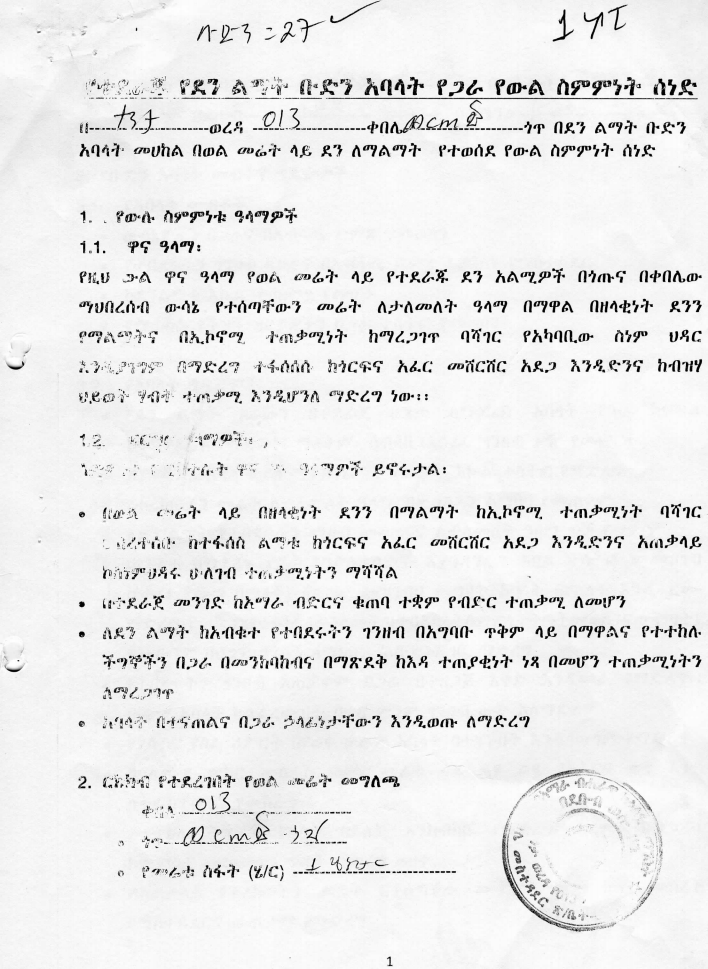 የተደራጁ የደን ልማት ቡድን አባላት የጋራ የውል ስምምነት ሰነድ
ወረዳ 013 ቀበሌ ጎጥ በደን ልማት ቡድን
አባላት መሀከል በወል መሬት ላይ ደን ለማልማት የተወሰደ የውል ስምምነት ሰነድ
1. የውሉ ስምምነቱ ዓላማዎች
1.1. ዋና ዓላማ፡
የዚህ ውል ዋና ዓላማ የወል መሬት ላይ የተደራጁ ደን አልሚዎች በጎጡና በቀበሌው
ማህበረሰብ ውሳኔ የተሰጣቸውን መሬት ለታለመለት ዓላማ በማዋል በዘላቂነት ደንን
የማልማትና በኢኮኖሚ ተጠቃሚነት ከማረጋገጥ ባሻገር የአካባቢው ስነም ህዳር
እንዲያገግም በማድረግ ተፋሰሰሱ ከጎርፍና አፈር መሸርሸር አደጋ እንዲድንና ከብዝሃ
ህይወት ሃብት ተጠቃሚ እንዲሆንለ ማድረግ ነው፡፡
1.2.
ዋና ዓላማዎች ይኖሩታል፡
• በወል መሬት ላይ በዘላቂነት ደንን በማልማት ከኢኮኖሚ ተጠቃሚነት ባሻገር
ከተፋሰስ ልማቱ ከጎርፍና አፈር መሸርሸር አደጋ እንዲድንና አጠቃላይ
ከስነምህዳሩ ሁለገብ ተጠቃሚነትን ማሻሻል
• በተደራጀ መንገድ ከአማራ ብድርና ቁጠባ ተቋም የብድር ተጠቃሚ ለመሆን
• ለደን ልማት ከአብቁተ የተበደሩትን ገንዘብ በአግባቡ ጥቅም ላይ በማዋልና የተተከሉ
ችግኞችን በጋራ በመንከባከብና በማጽደቅ ከእዳ ተጠያቂነት ነጻ በመሆን ተጠቃሚነትን
ለማረጋገጥ
• አባላት በተናጠልና በጋራ ኃላፊነታቸውን እንዲወጡ ለማድረግ
2. ርክክብ የተደረገበት የወል መሬት መግለጫ
ቀበሌ 013
• ጎጥ
• የመሬቱ ስፋት (ሄ/ር) 1
1